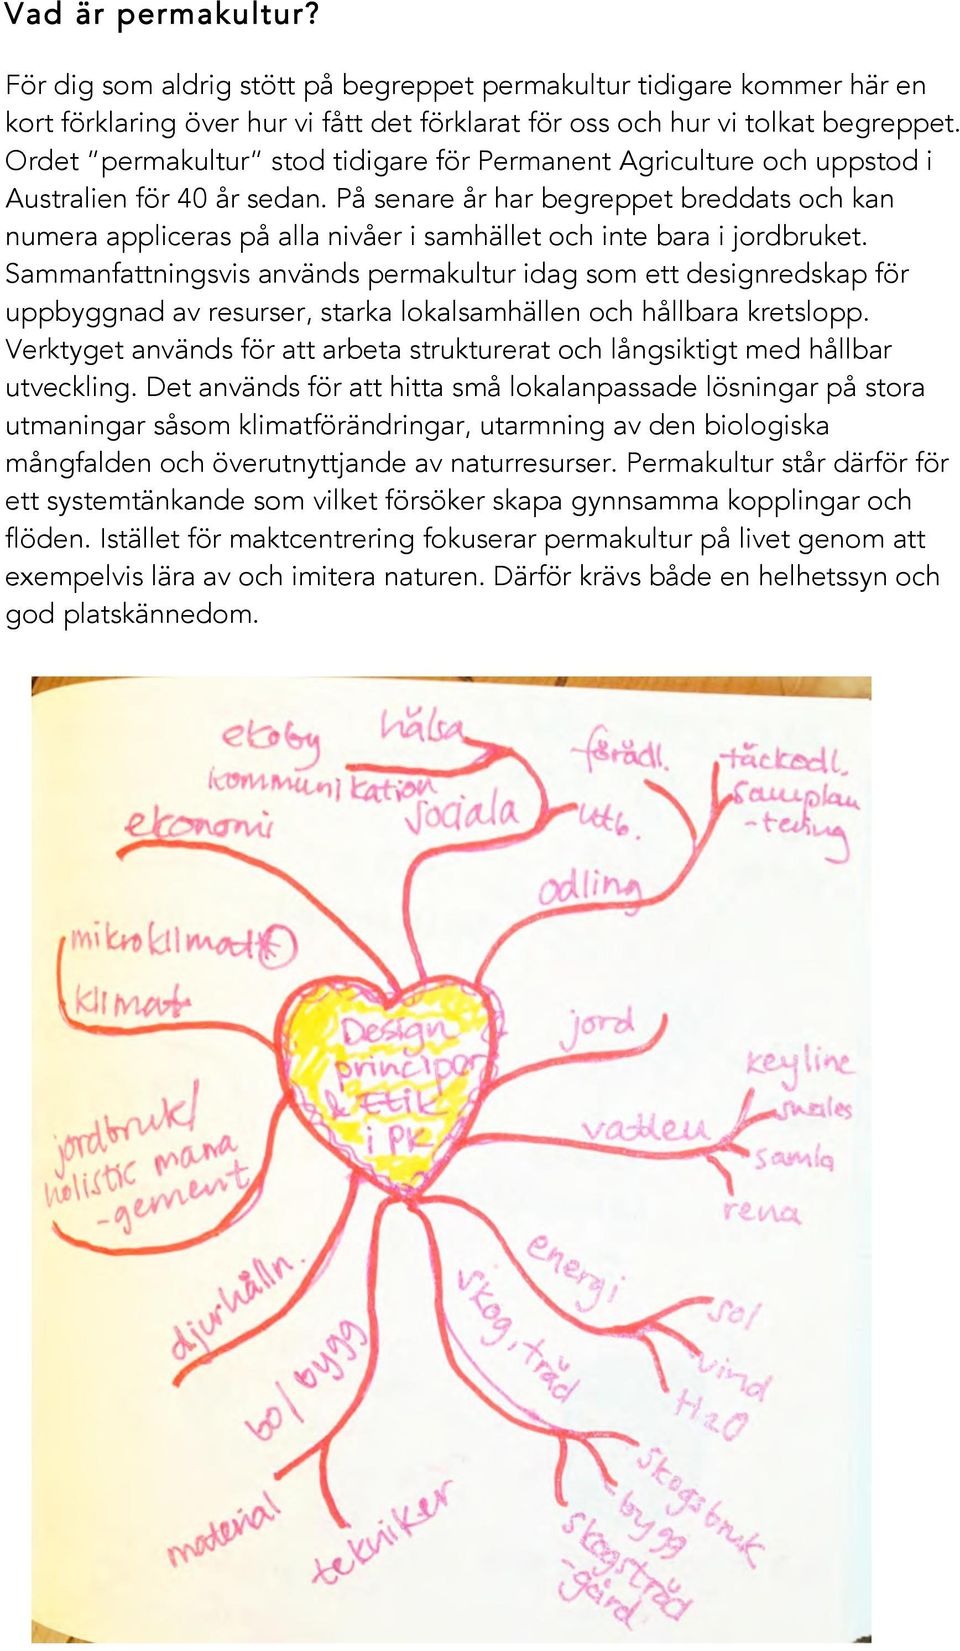 Vad är permakultur?
För dig som aldrig stött på begreppet permakultur tidigare kommer här en
kort förklaring över hur vi fått det förklarat för oss och hur vi tolkat begreppet.
Ordet ”permakultur” stod tidigare för Permanent Agriculture och uppstod i
Australien för 40 år sedan. På senare år har begreppet breddats och kan
numera appliceras på alla nivåer i samhället och inte bara i jordbruket.
Sammanfattningsvis används permakultur idag som ett designredskap för
uppbyggnad av resurser, starka lokalsamhällen och hållbara kretslopp.
Verktyget används för att arbeta strukturerat och långsiktigt med hållbar
utveckling. Det används för att hitta små lokalanpassade lösningar på stora
utmaningar såsom klimatförändringar, utarmning av den biologiska
mångfalden och överutnyttjande av naturresurser. Permakultur står därför för
ett systemtänkande som vilket försöker skapa gynnsamma kopplingar och
flöden. Istället för maktcentrering fokuserar permakultur på livet genom att
exempelvis lära av och imitera naturen. Därför krävs både en helhetssyn och
god platskännedom.
ekoby
hälsa
kommunikation
ekonomi
sociala
utb.
förädl.
täckodl.
samplan
-tering
odling
mikroklimat
klimat
Design
principer
& Etik
i PK
jord
keyline
swales
vatten
samla
rena
jordbruk/
holistic mana
-gement
djurhålln.
bo/bygg
material
tekniker
skog, träd
energi
sol
vind
H2O
skogsbruk
bygg
skogsträd
-gård